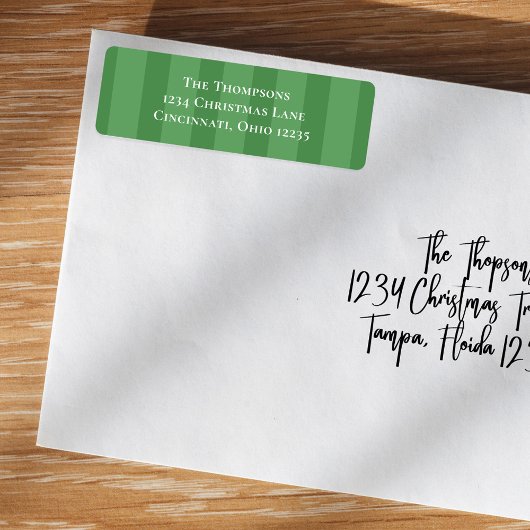 The Thompsons
1234 Christmas Lane
Cincinnati, Ohio 12235
The Thopson
1234 Christmas Tr
Tampa, Floida 123